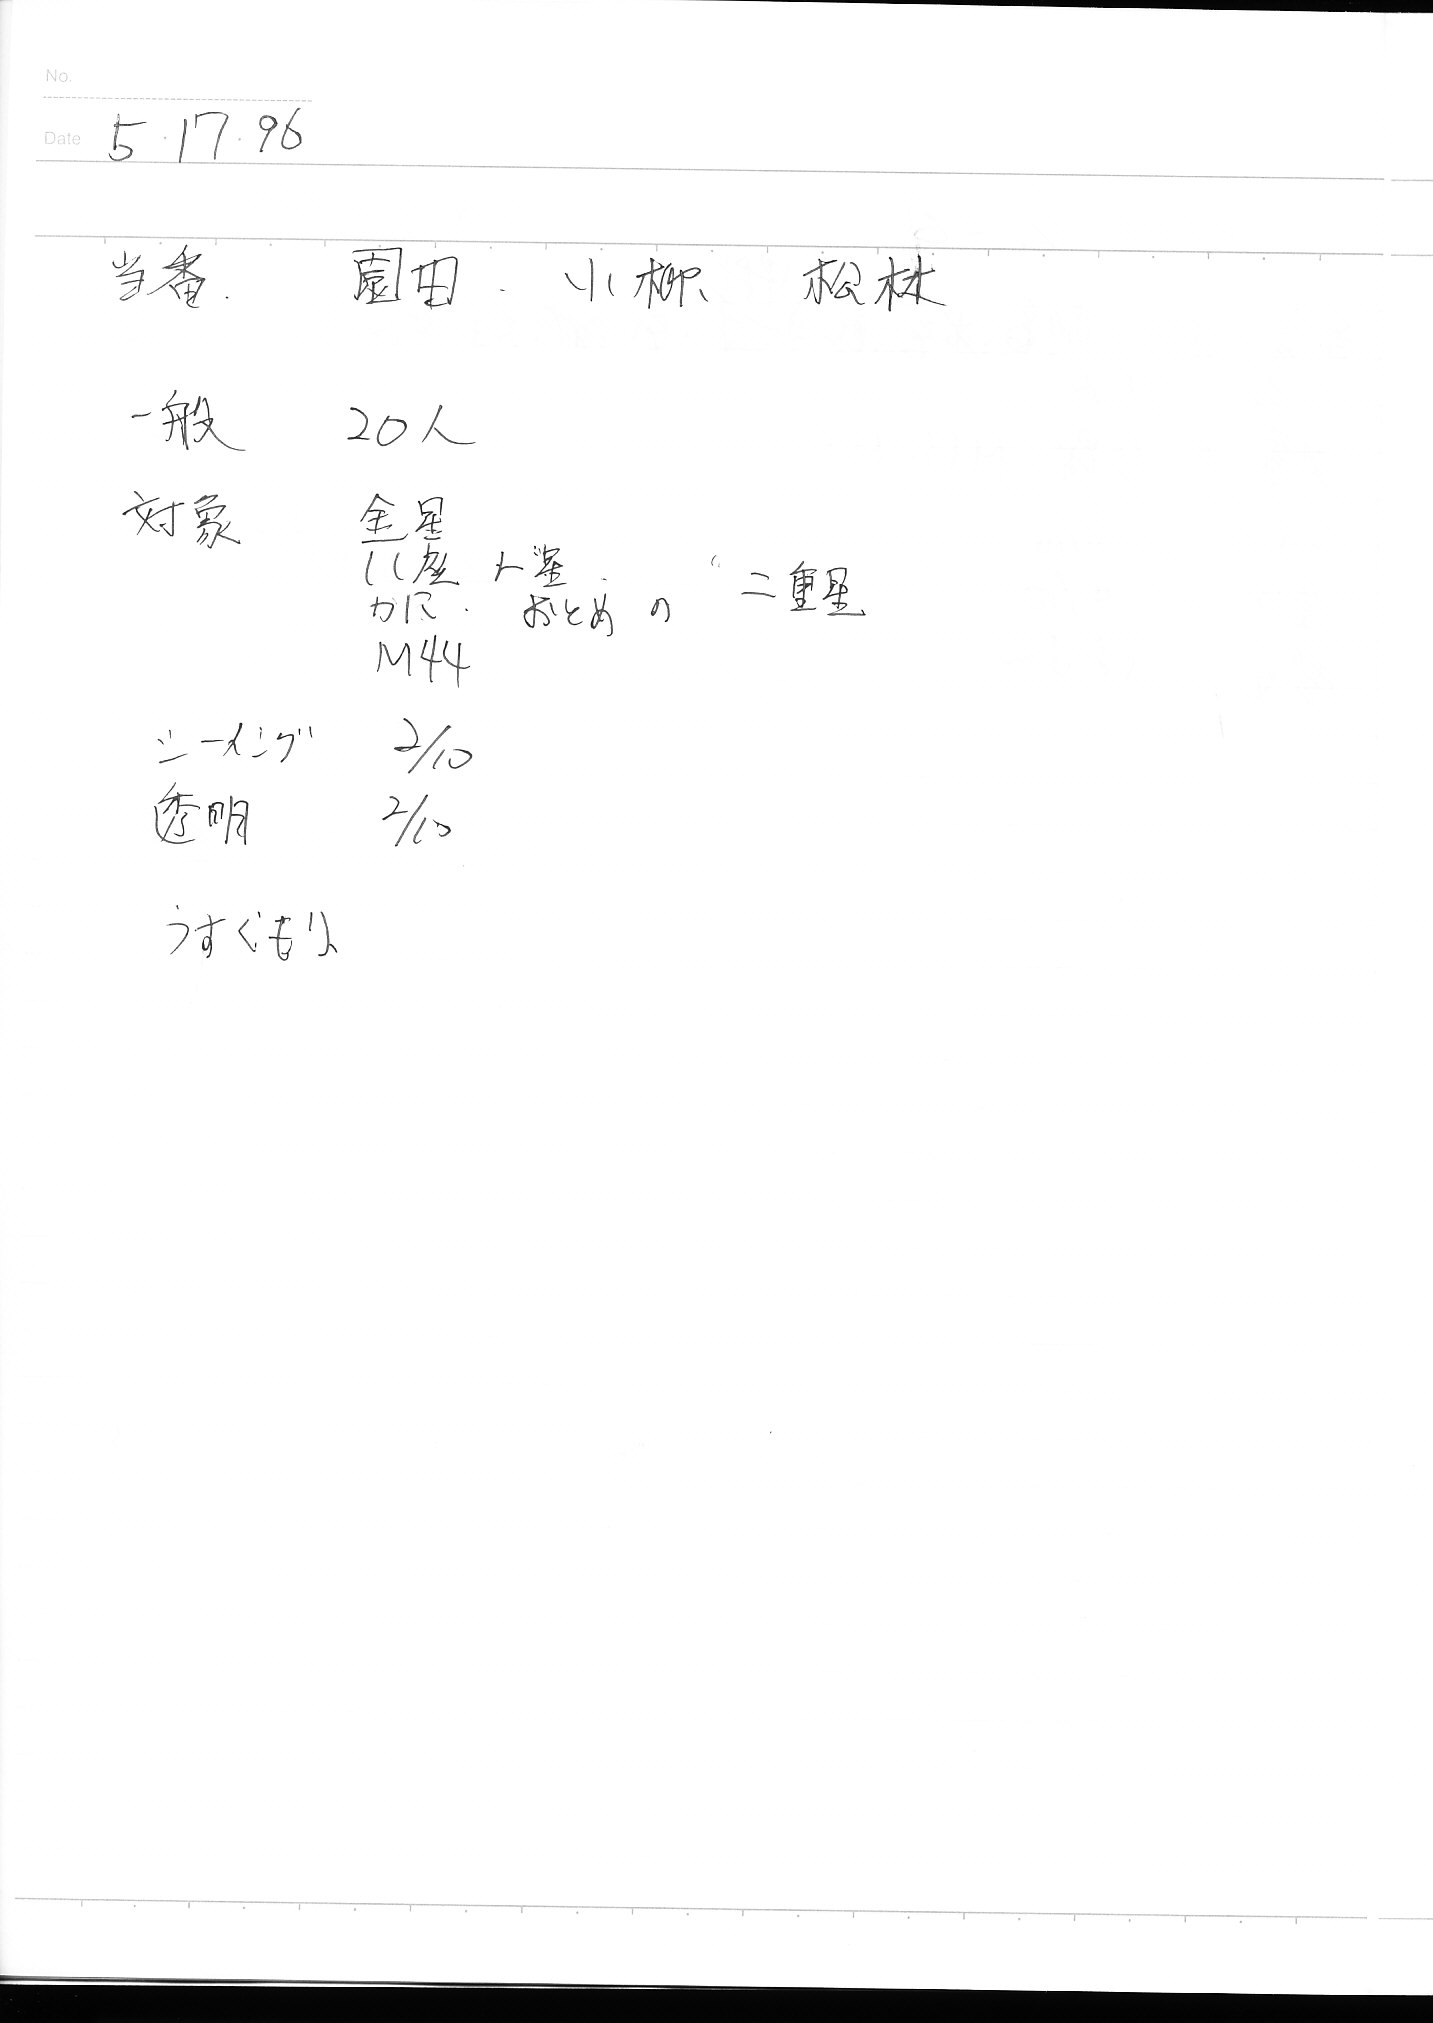 No.
Date 5・17・96
当番. 園田. 小柳、 松林
一般 20人
対象 金星
しし座 二重星
かに. おとめの
M44
シーイング 2/10
透明 2/10
うすぐもり、